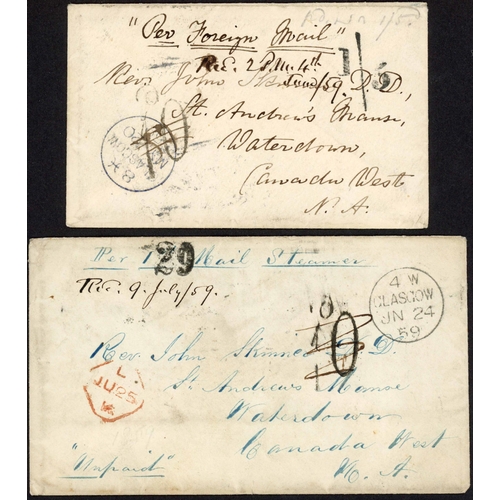 "Per Foreign Mail"
Rec. 2 P.M. 4th
June/59.
1/5
Rev. John Skinner D.D.,
St. Andrew's Manse,
Waterdown,
Canada West
N. A.
10
Per Mail Steamer
29
Rec. 9. July/59.
4 W
GLASGOW
JN 24
59
10
Rev. John Skinner D.D.
St Andrews Manse
Waterdown
Canada West
N. A.
"Unpaid"
L
JU 25